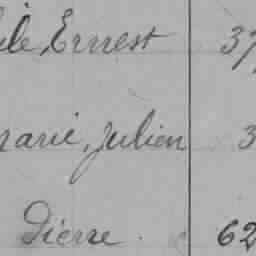 Ernest 37
Marie, Julien 3
Pierre 62